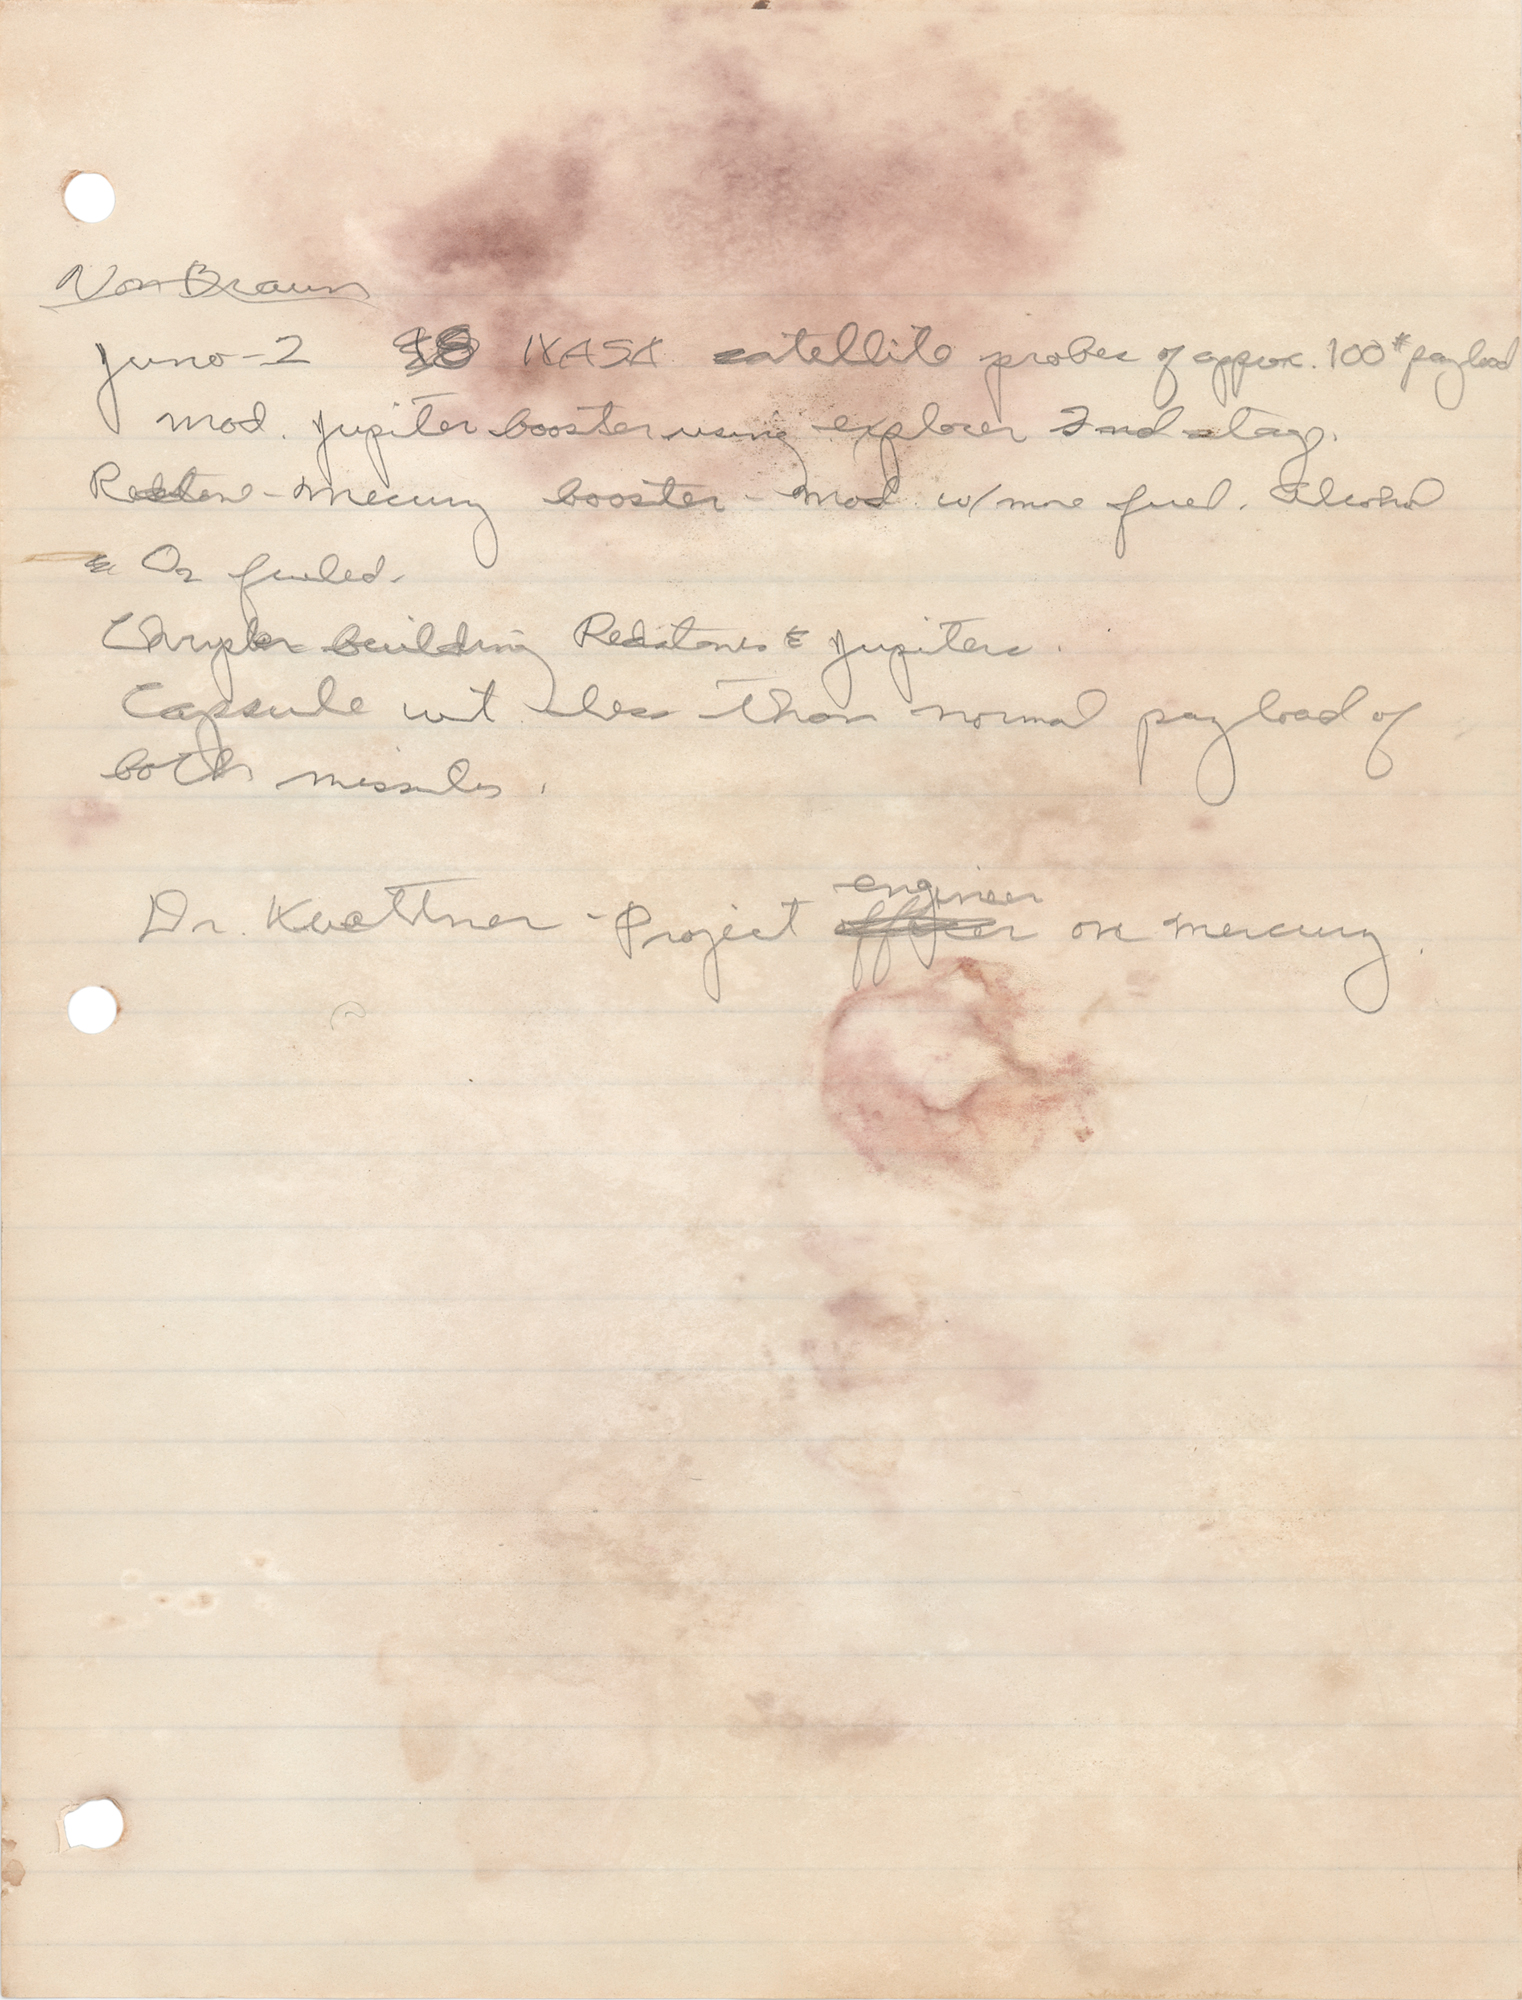 Von Braun
Juno-2 NASA satellite probes of approx. 100# payload
mod. Jupiter booster using explorer 2nd stag.
Redstone-Mercury booster - mod w/more fuel. Alcohol
& O2 fueled.
Chrysler building Redstones & Jupiters.
Capsule wt less than normal payload of
both missiles.
engineer
Dr. Kuettner - Project officer on mercury.